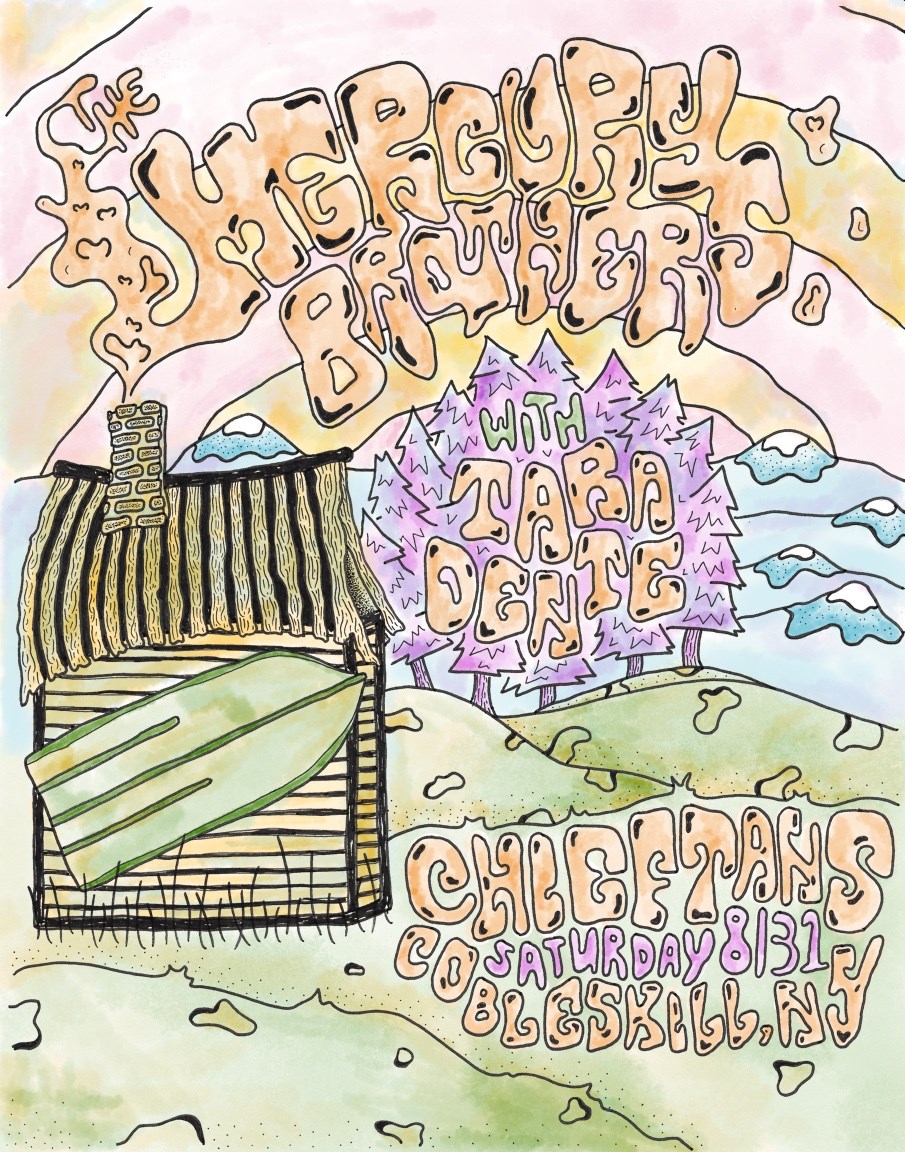 THE
MERCURY
BROTHERS
WITH
TARA
DENTE
CHIEFTANS
SATURDAY 8/31
COBLESKILL, NY